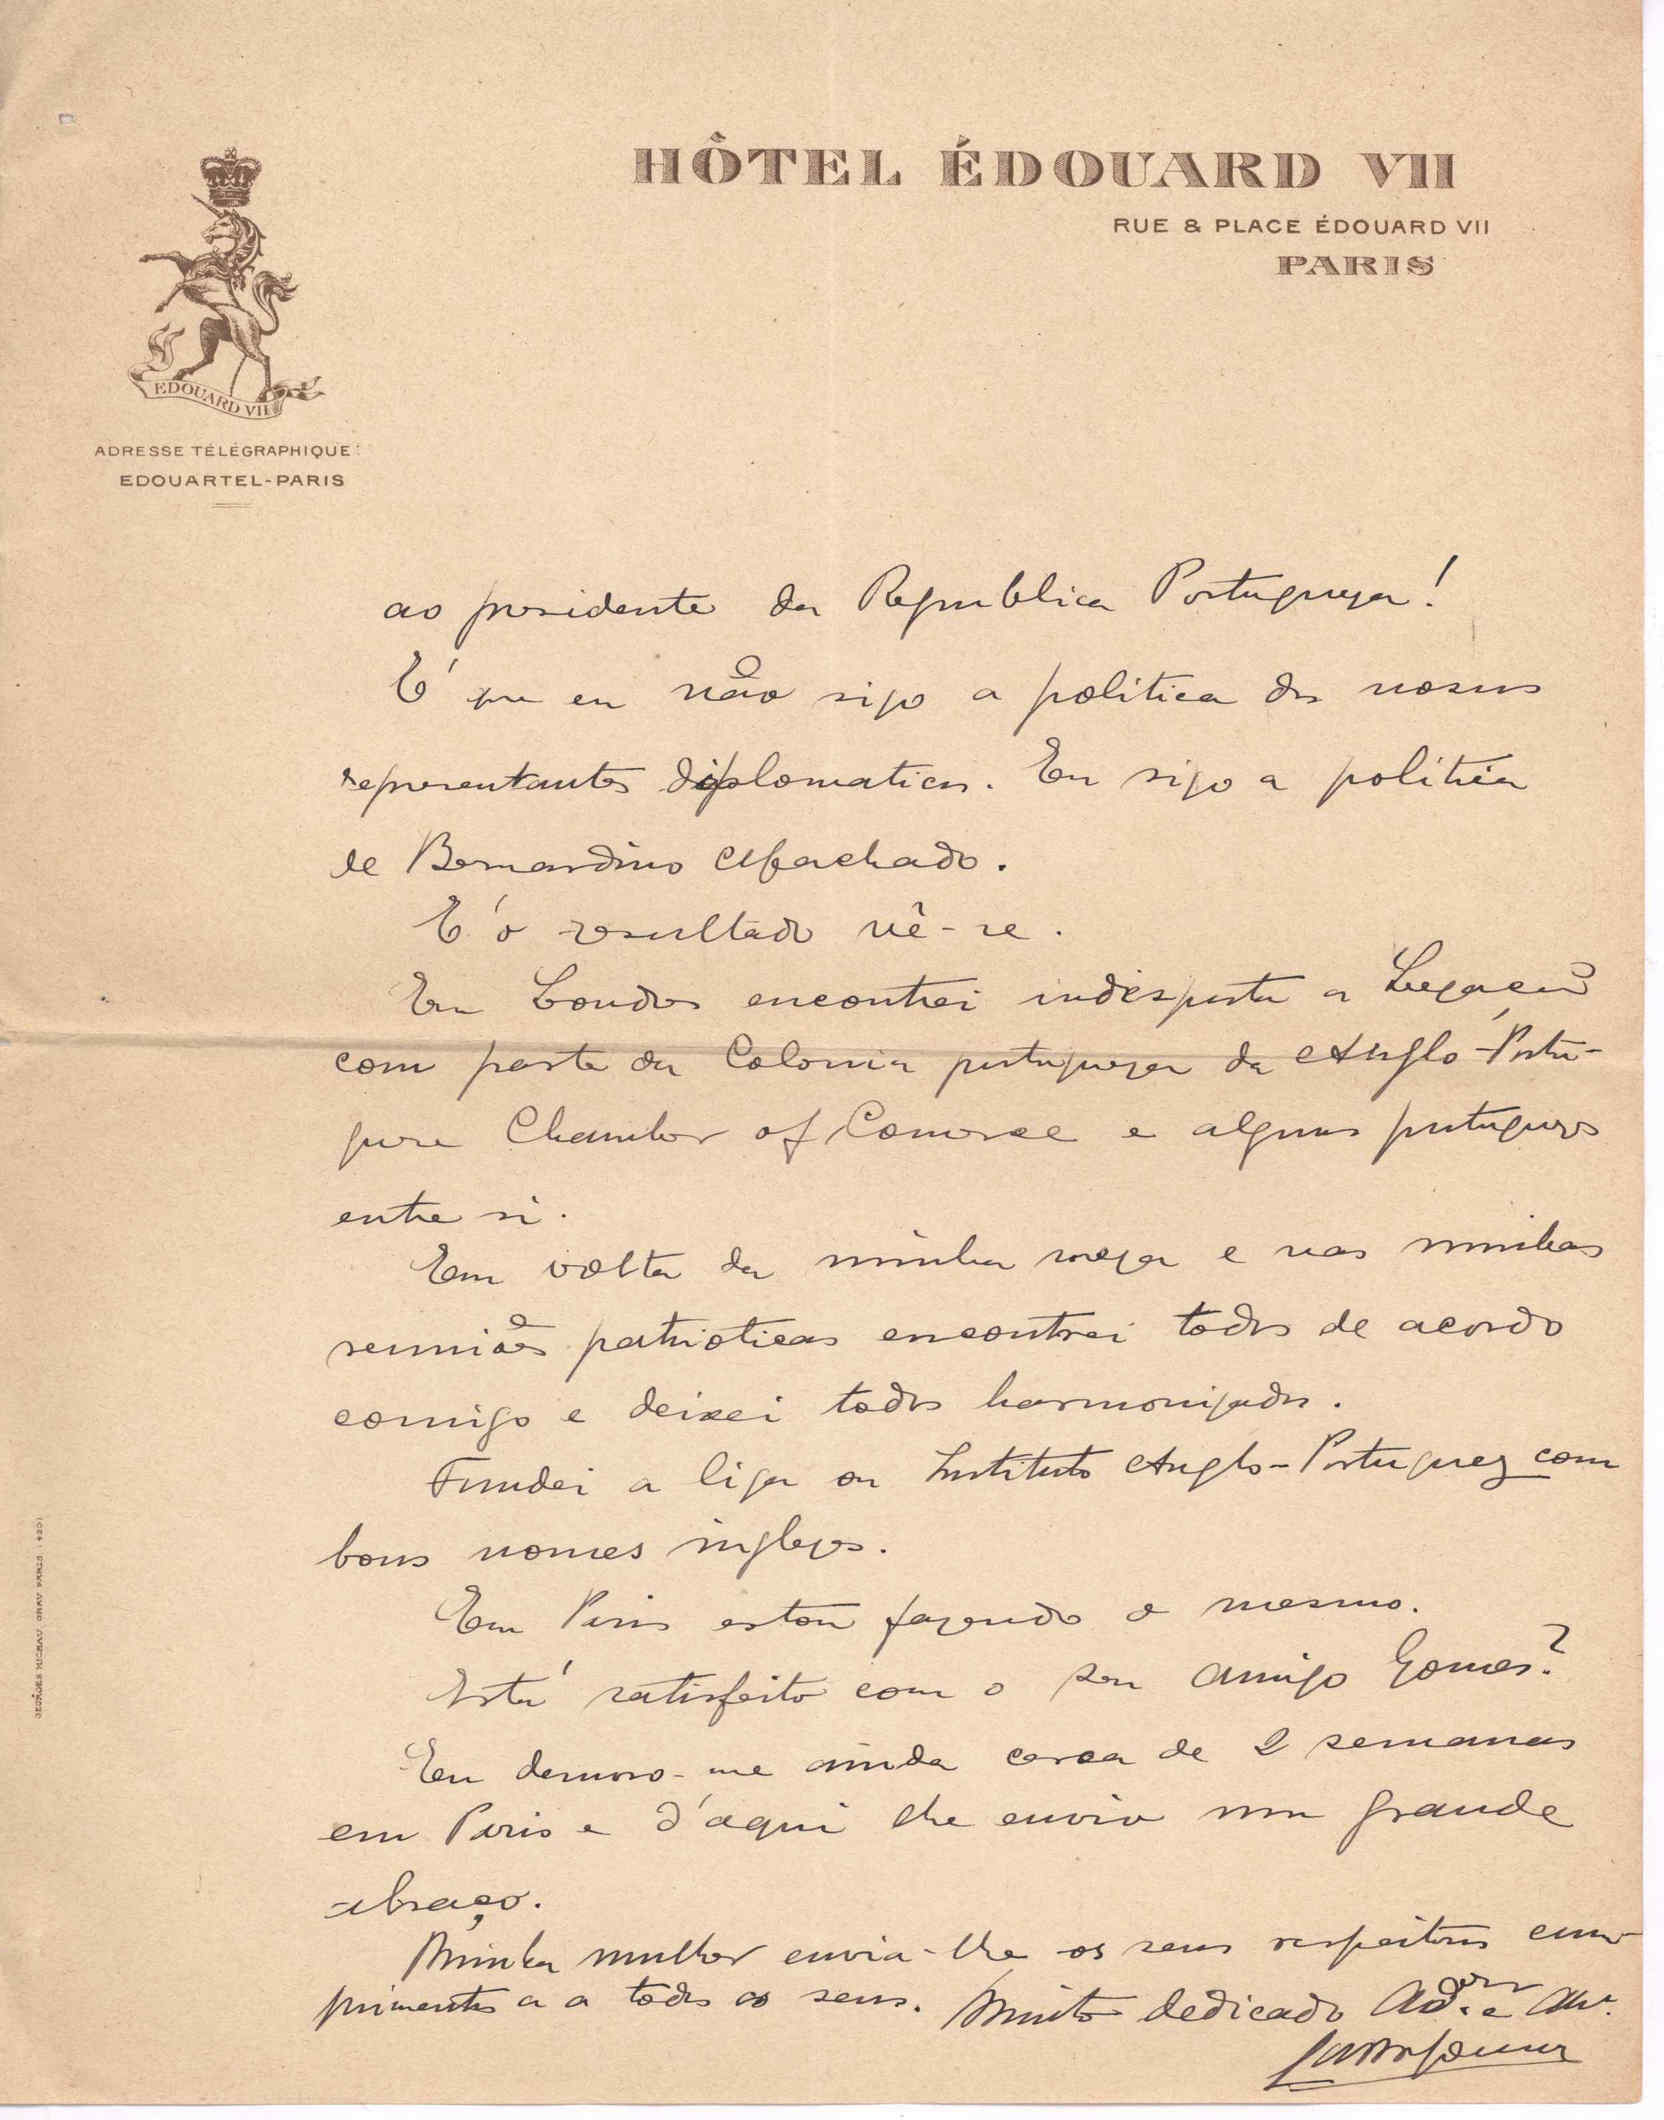 HÔTEL ÉDOUARD VII
RUE & PLACE ÉDOUARD VII
PARIS
EDOUARD VII
ADRESSE TÉLÉGRAPHIQUE:
EDOUARTEL-PARIS
ao presidente da Republica Portugueza!
É que eu não sigo a politica dos nossos
representantes diplomaticos. Eu sigo a politica
de Bernardino Machado.
E o resultado vê-se.
Em Londres encontrei indisposta a Legação
com parte da Colonia portugueza da Anglo-Portu-
guese Chamber of Comerce e alguns portuguezes
entre si.
Em volta da minha meza e nas minhas
reuniões patrioticas encontrei todos de acordo
comigo e deixei todos harmonizados.
Fundei a liga ou Instituto Anglo-Portuguez com
bons nomes inglezes.
Em Paris estou fazendo o mesmo.
Está satisfeito com o seu amigo Gomes?
Eu demoro-me ainda cerca de 2 semanas
em Paris e d'aqui lhe envio um grande
abraço.
Minha mulher envia-lhe os seus respeitosos cum-
primentos a a todos os seus. Muito dedicado Ador. e